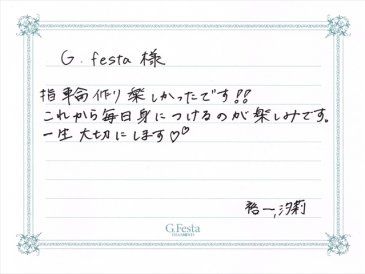 G.festa 様
指輪作り楽しかったです!!
これから毎日身につけるのが楽しみです。
一生大切にします♡♡
裕一,汐莉
G.Festa